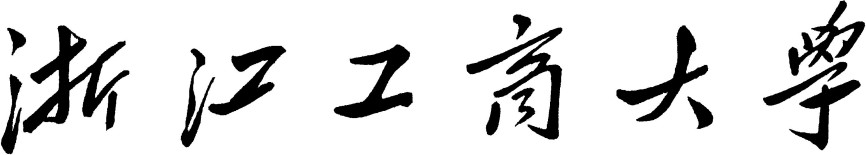 浙江工商大学